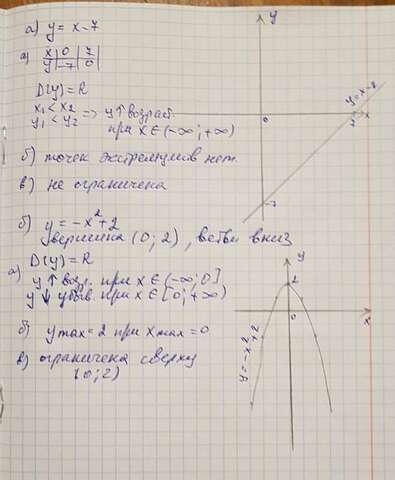 а) y = x - 7
а) x | 0 | 7
y | -7 | 0
D(y) = R
x₁ < x₂
y₁ < y₂ => y↑ возраст.
при x ∈ (-∞; +∞)
б) точек экстремумов нет.
в) не ограничена
y
0
7
x
-7
б) y = -x² + 2
вершина (0; 2), ветви вниз
а) D(y) = R
y ↑ возр. при x ∈ (-∞; 0]
y ↓ убыв. при x ∈ [0; +∞)
б) y max = 2 при x max = 0
в) ограничена сверху
(0; 2)
y
2
0
x
y = -x² + 2